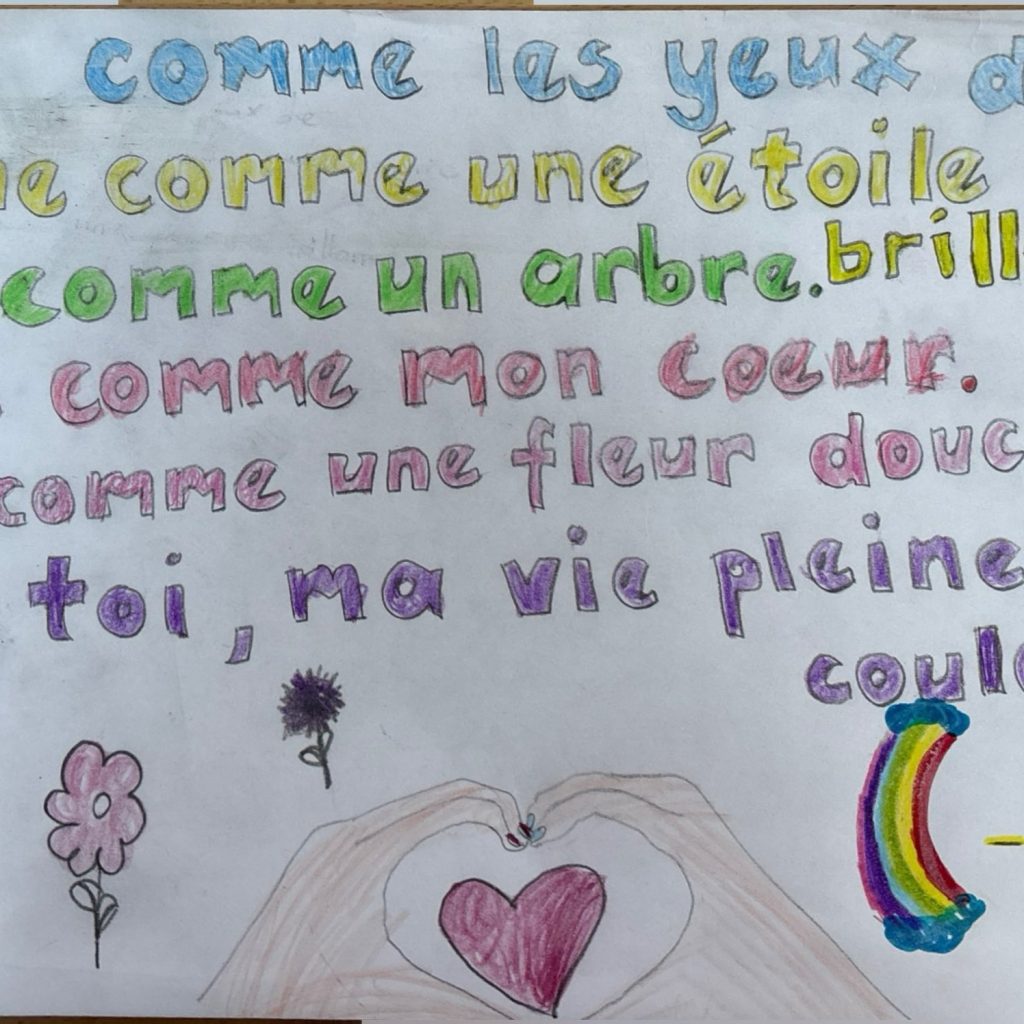 comme les yeux d
ne comme une étoile
brill
comme un arbre.
comme mon coeur.
comme une fleur douc
toi, ma vie pleine
coul